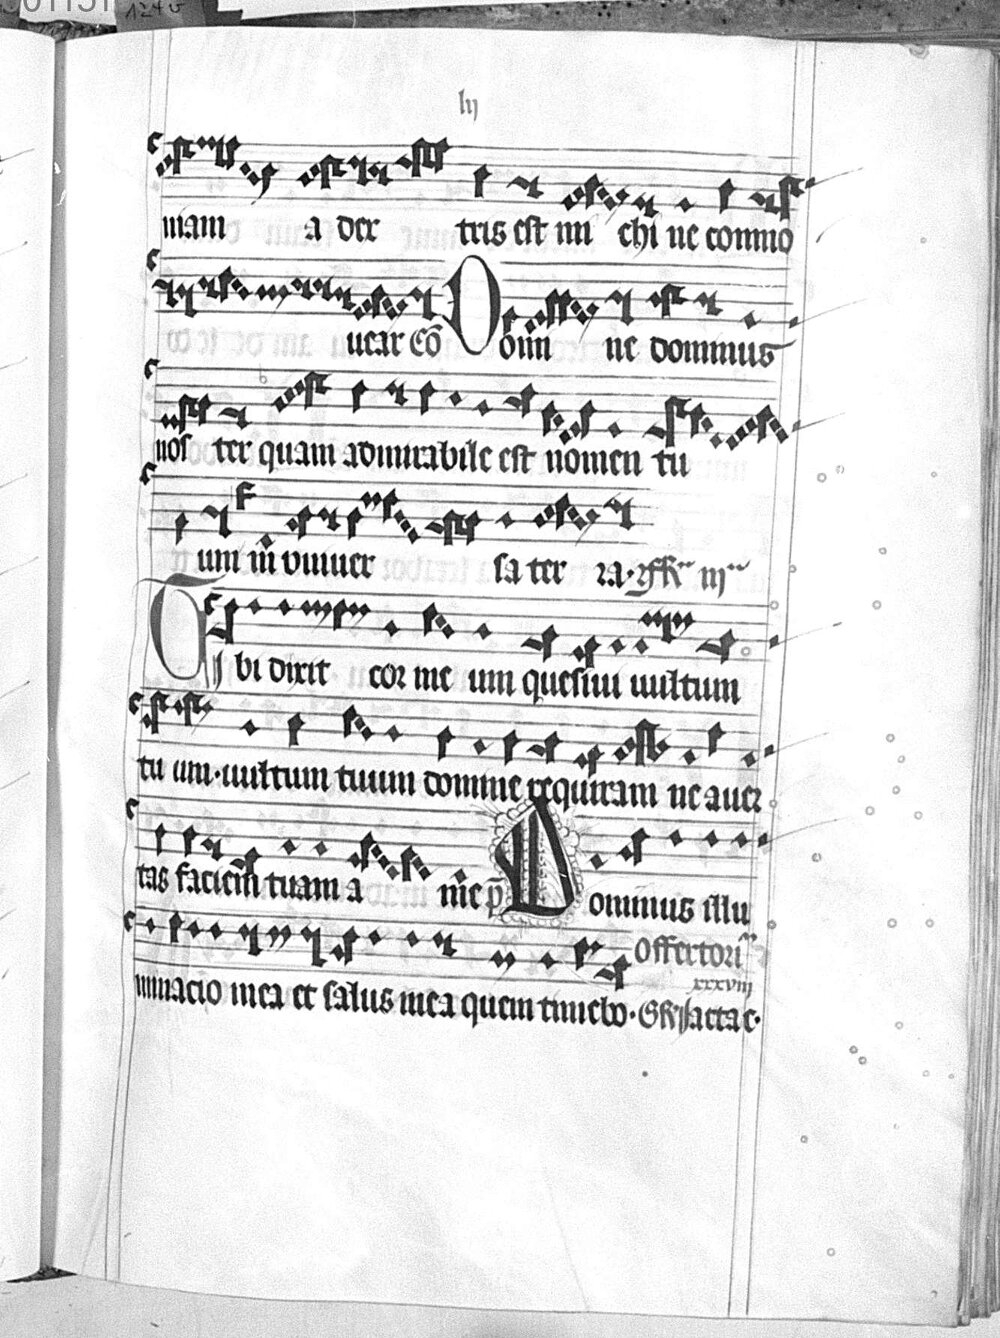 lij
niam a dex tris est mi chi ne commo
uear Cō Domi ne dominus
nos ter quam admirabile est nomen tu
um in vniuer sa ter ra.
Tibi dixit cor me um quesiui uultum
tu um·uultum tuum domine requiram ne auer
tas faciem tuam a me p̄ Dominus illu
Offertori
xxxviij
minacio mea et salus mea quem timebo·